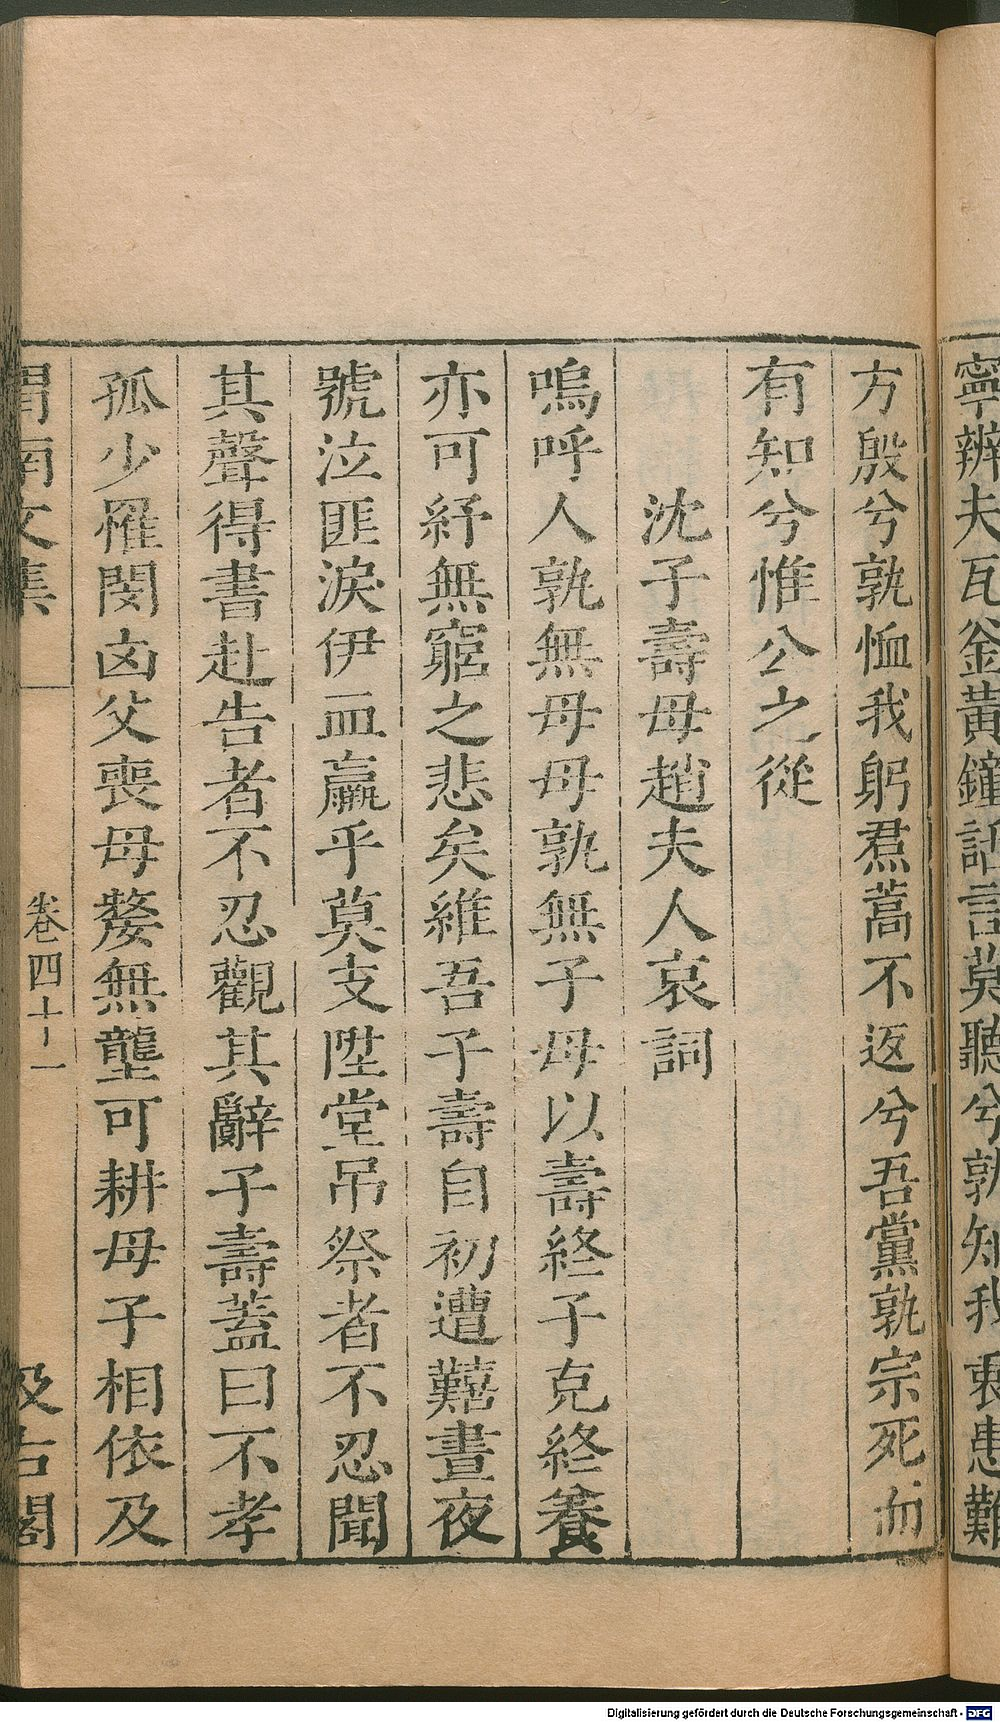 寧辨夫瓦釜黃鐘話言莫聽兮孰知我衷患難
方殷兮孰恤我躬焄蒿不返兮吾黨孰宗死而
有知兮惟公之從
沈子壽母趙夫人哀詞
嗚呼人孰無母母孰無子母以壽終子克終養
亦可紓無窮之悲矣維吾子壽自初遭囏晝夜
號泣匪淚伊血羸乎莫支陞堂吊祭者不忍聞
其聲得書赴告者不忍觀其辭子壽蓋曰不孝
孤少罹閔凶父喪母嫠無壟可耕母子相依及
渭南文集 卷四十一 汲古閣
Digitalisierung gefördert durch die Deutsche Forschungsgemeinschaft - DFG